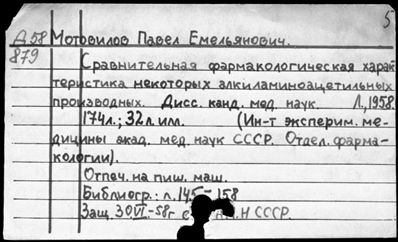 5
Д58 Мотовилов Павел Емельянович.
879
Сравнительная фармакологическая харак-
теристика некоторых алкиламиноацетильных
производных. Дисс. канд. мед. наук. Л., 1958.
174л.; 32л. илл. (Ин-т эксперим. ме-
дицины акад. мед. наук СССР. Отдел. фарма-
кологии).
Отпеч. на пиш. маш.
Библиогр.: л. 145-158
Защ. 30 VI-58г СССР.